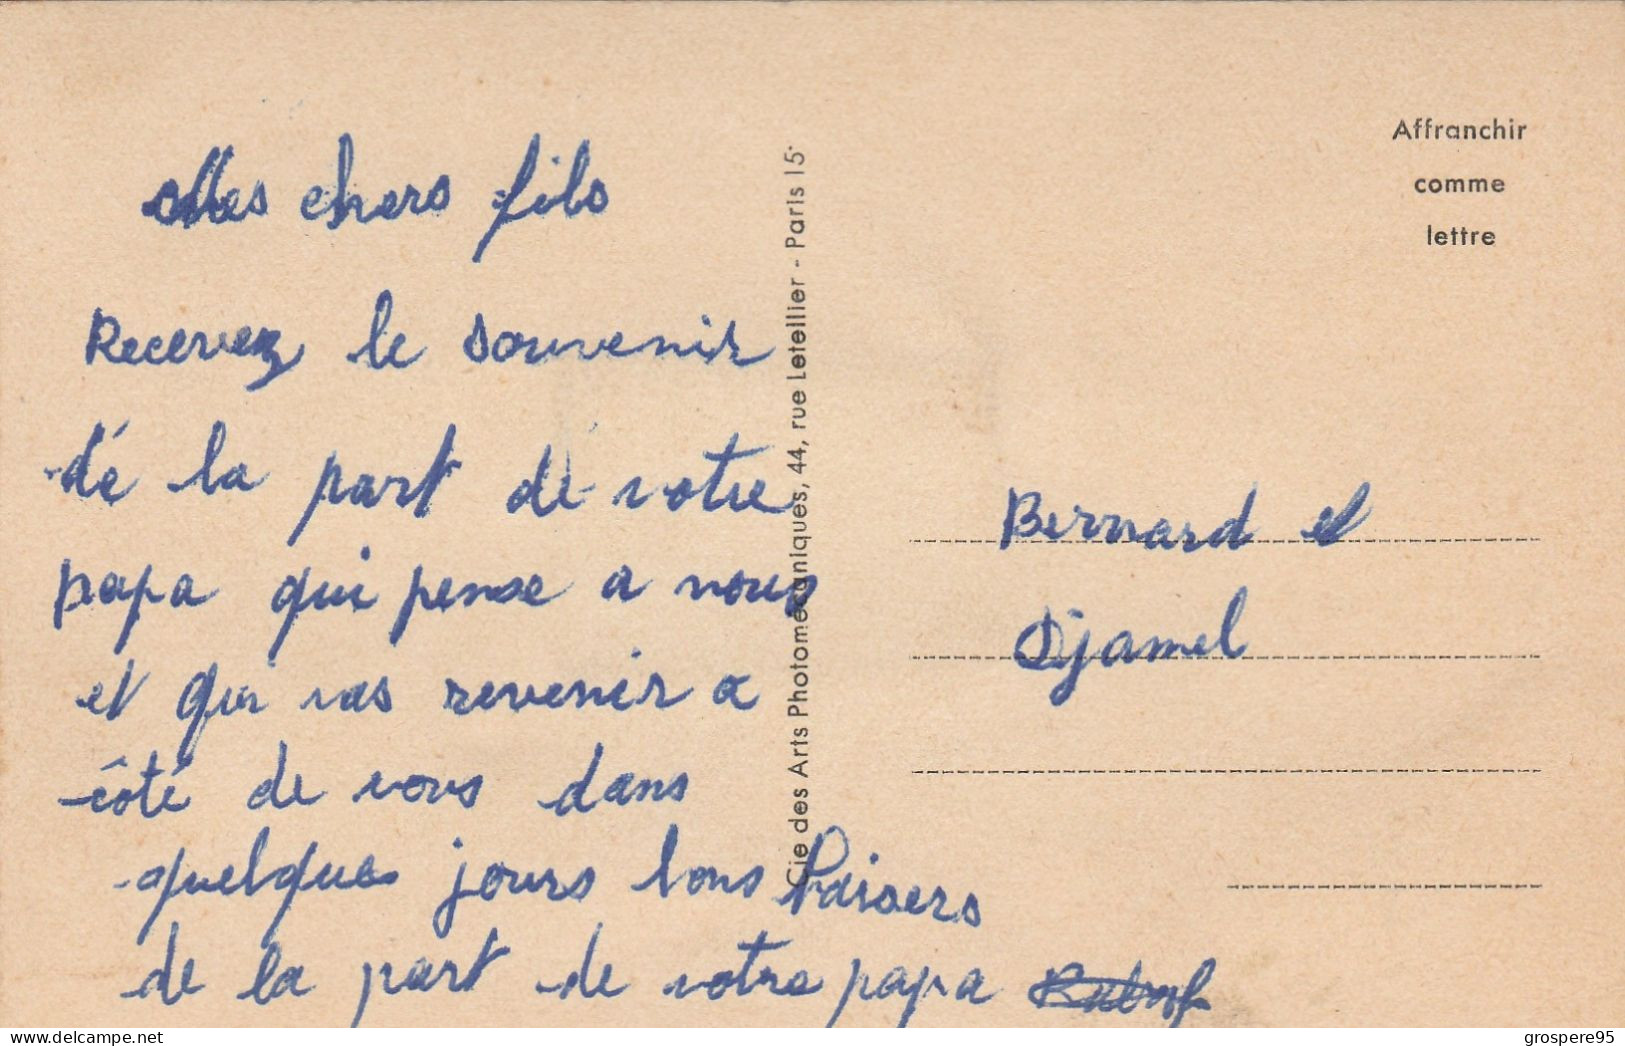 Mes chers fils
Recevez le souvenir
dé la part dé votre
papa qui pense a nous
et qui vas revenir a
côté de vous dans
quelques jours bons baisers
de la part de votre papa
Cie des Arts Photomécaniques, 44, rue Letellier - Paris 15e
Affranchir
comme
lettre
Bernard et
Djamel
grospere95